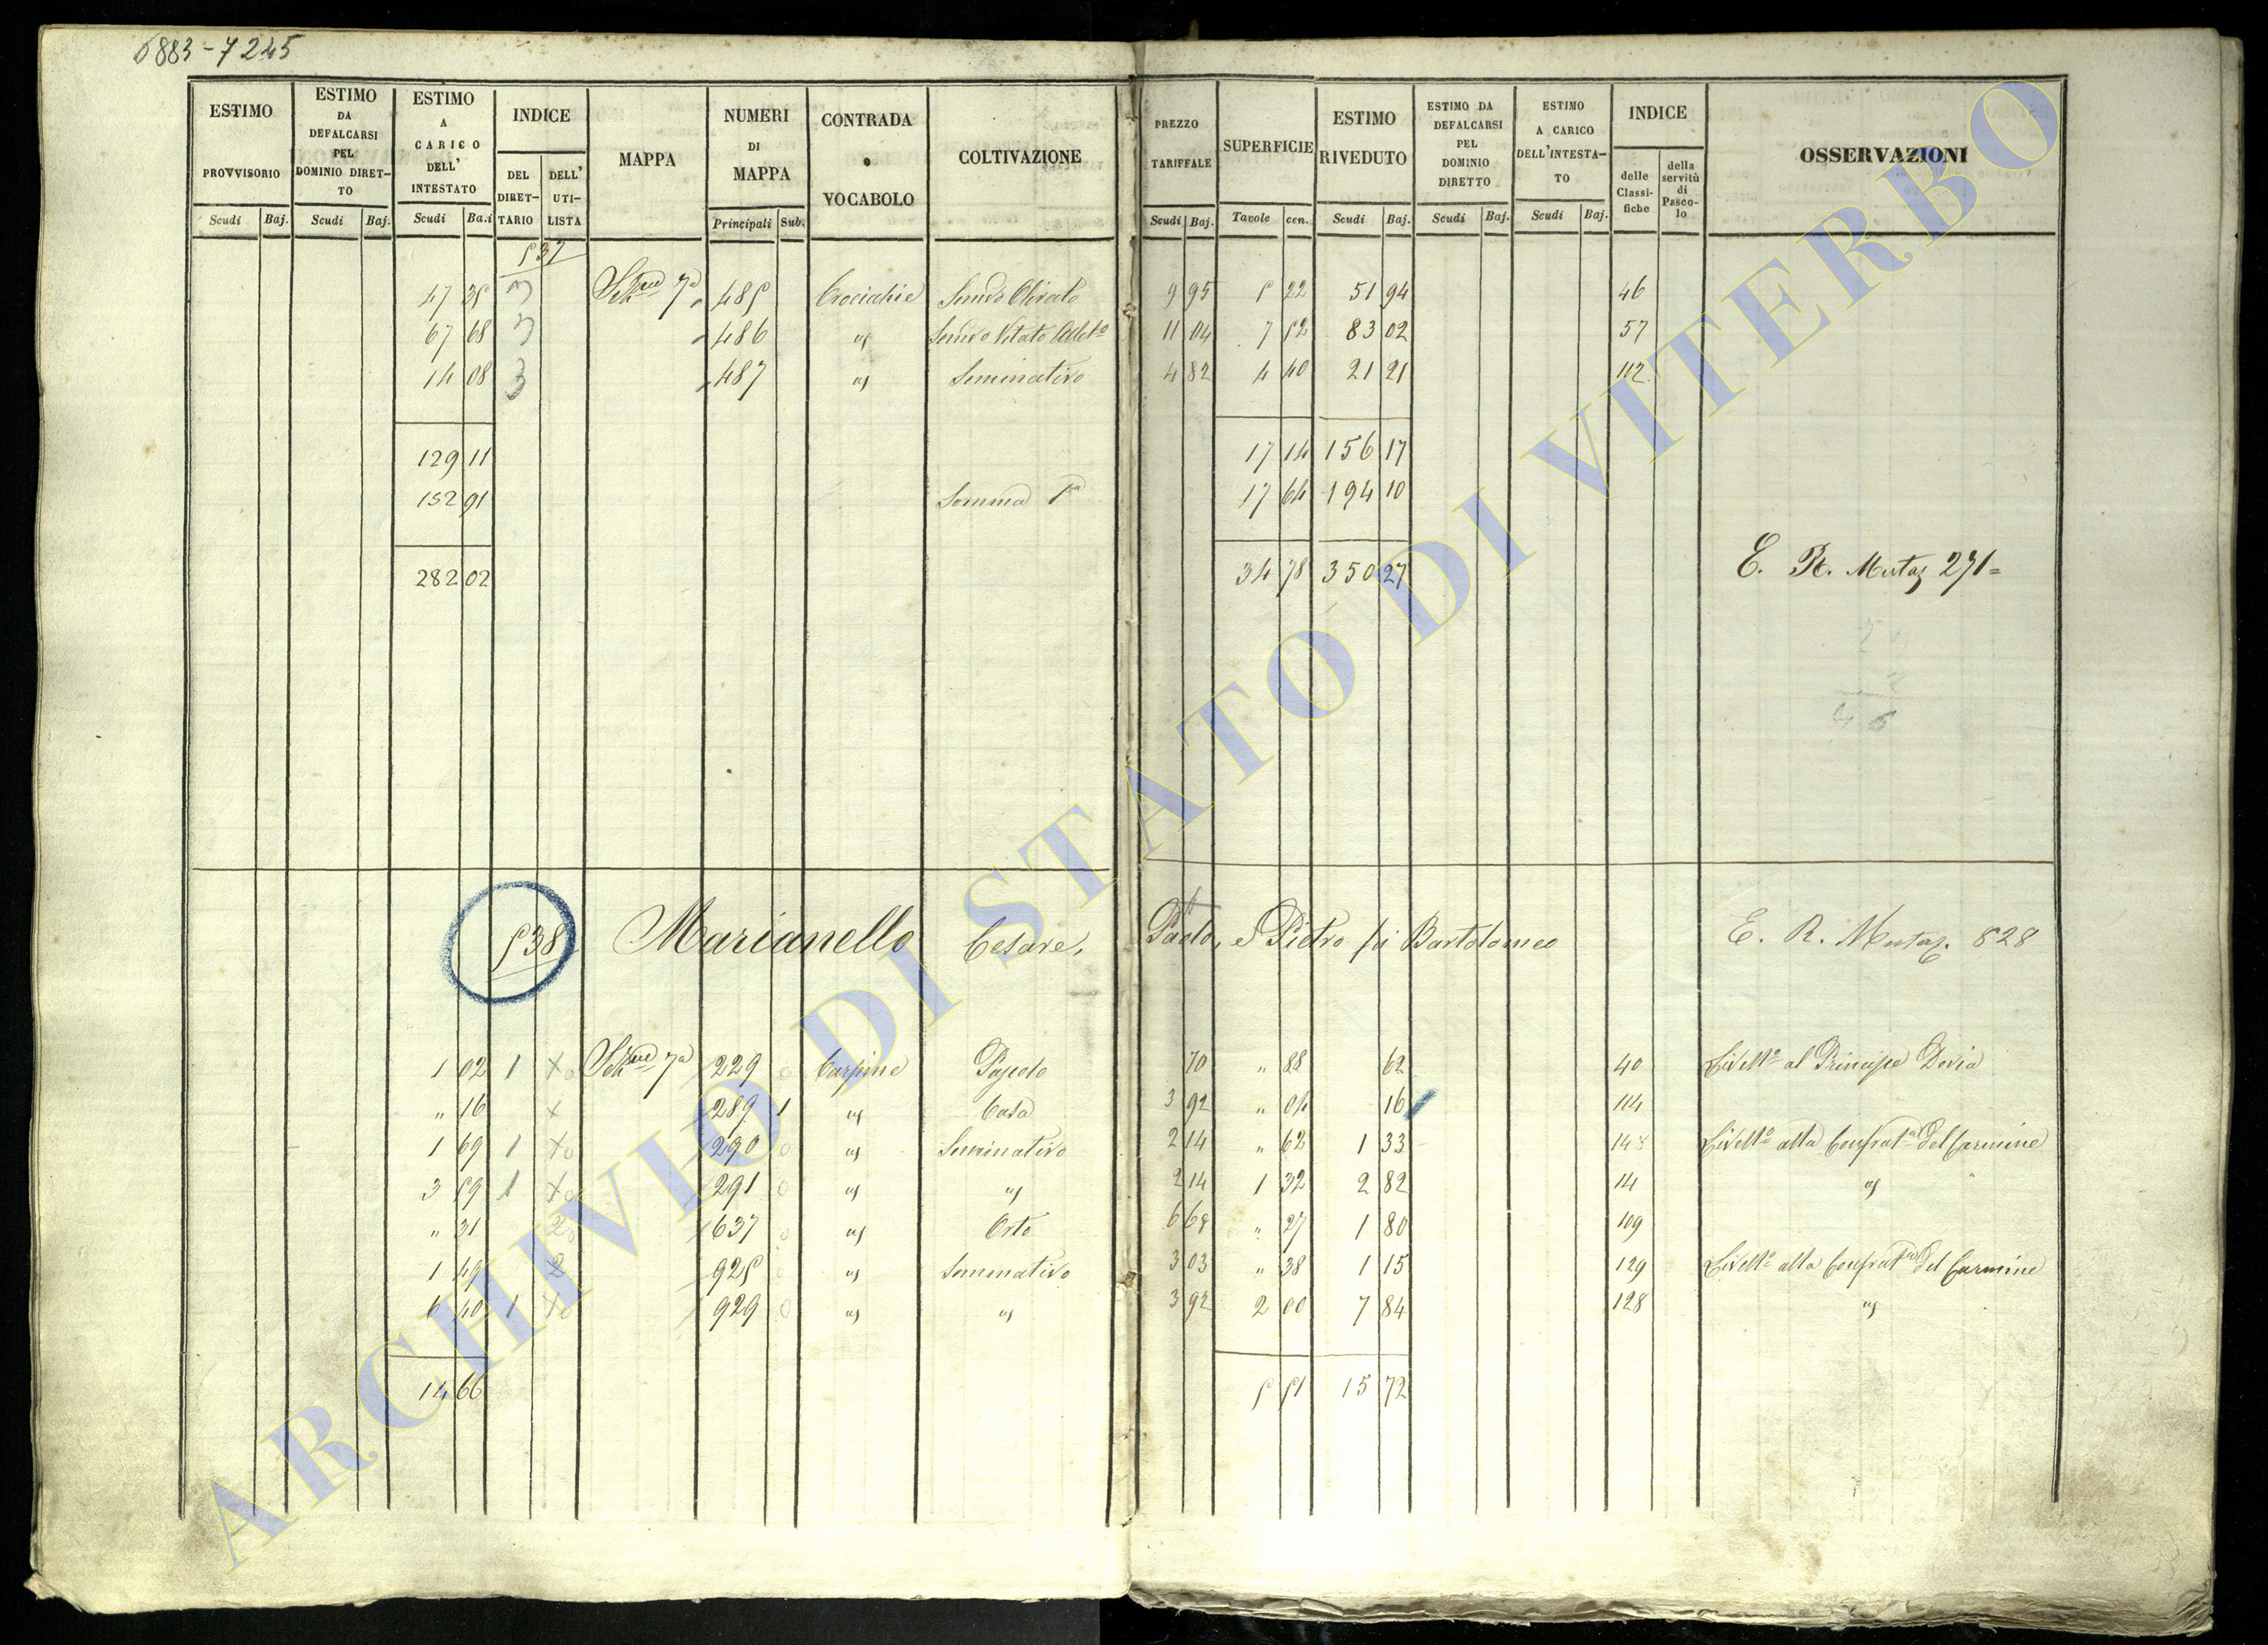 6883-7245
ESTIMO PROVVISORIO Scudi Baj.
ESTIMO DA DEFALCARSI PEL DOMINIO DIRETTO Scudi Baj.
ESTIMO A CARICO DELL' INTESTATO Scudi Ba.i
INDICE DEL DIRETTARIO DELL' UTILISTA
MAPPA
NUMERI DI MAPPA Principali Sub.
CONTRADA o VOCABOLO
COLTIVAZIONE
PREZZO TARIFFALE Scudi Baj.
SUPERFICIE Tavole cen.
ESTIMO RIVEDUTO Scudi Baj.
ESTIMO DA DEFALCARSI PEL DOMINIO DIRETTO Scudi Baj.
ESTIMO A CARICO DELL'INTESTATO Scudi Baj.
INDICE delle Classifiche della servitù di Pascolo
OSSERVAZIONI
537
47 35 3 7a 485 Crocichie Semvo Olivato 9 95 5 22 51 94 46
67 68 3 486 " Semvo Vitato 11 04 7 52 83 02 57
14 08 3 487 " Seminativo 4 82 4 40 21 21 112
129 11 17 14 156 17
152 91 Somma 17 64 194 10
282 02 34 78 350 27 E. R. Mutaz 271=
538 Marianello Cesare, Paolo, e Pietro di Bartolomeo E. R. Mutaz. 828
1 02 1 x 7a 229 0 Carpine Pascolo 70 " 88 62 40 Livello al Principe Doria
" 16 x 289 1 " Casa 3 92 " 04 16 114
1 69 1 x 290 0 " Seminativo 2 14 " 62 1 33 Livello alla Confrata del Carmine
3 59 1 x 291 0 " " 2 14 1 32 2 82 14 "
" 31 2 637 0 " Orto 6 68 " 27 1 80 109
1 49 2 925 " Seminativo 3 03 " 38 1 15 129 Livello alla Confrata del Carmine
6 40 1 x 929 0 " " 3 92 2 00 7 84 128 "
14 66 5 51 15 72
ARCHIVIO DI STATO DI VITERBO